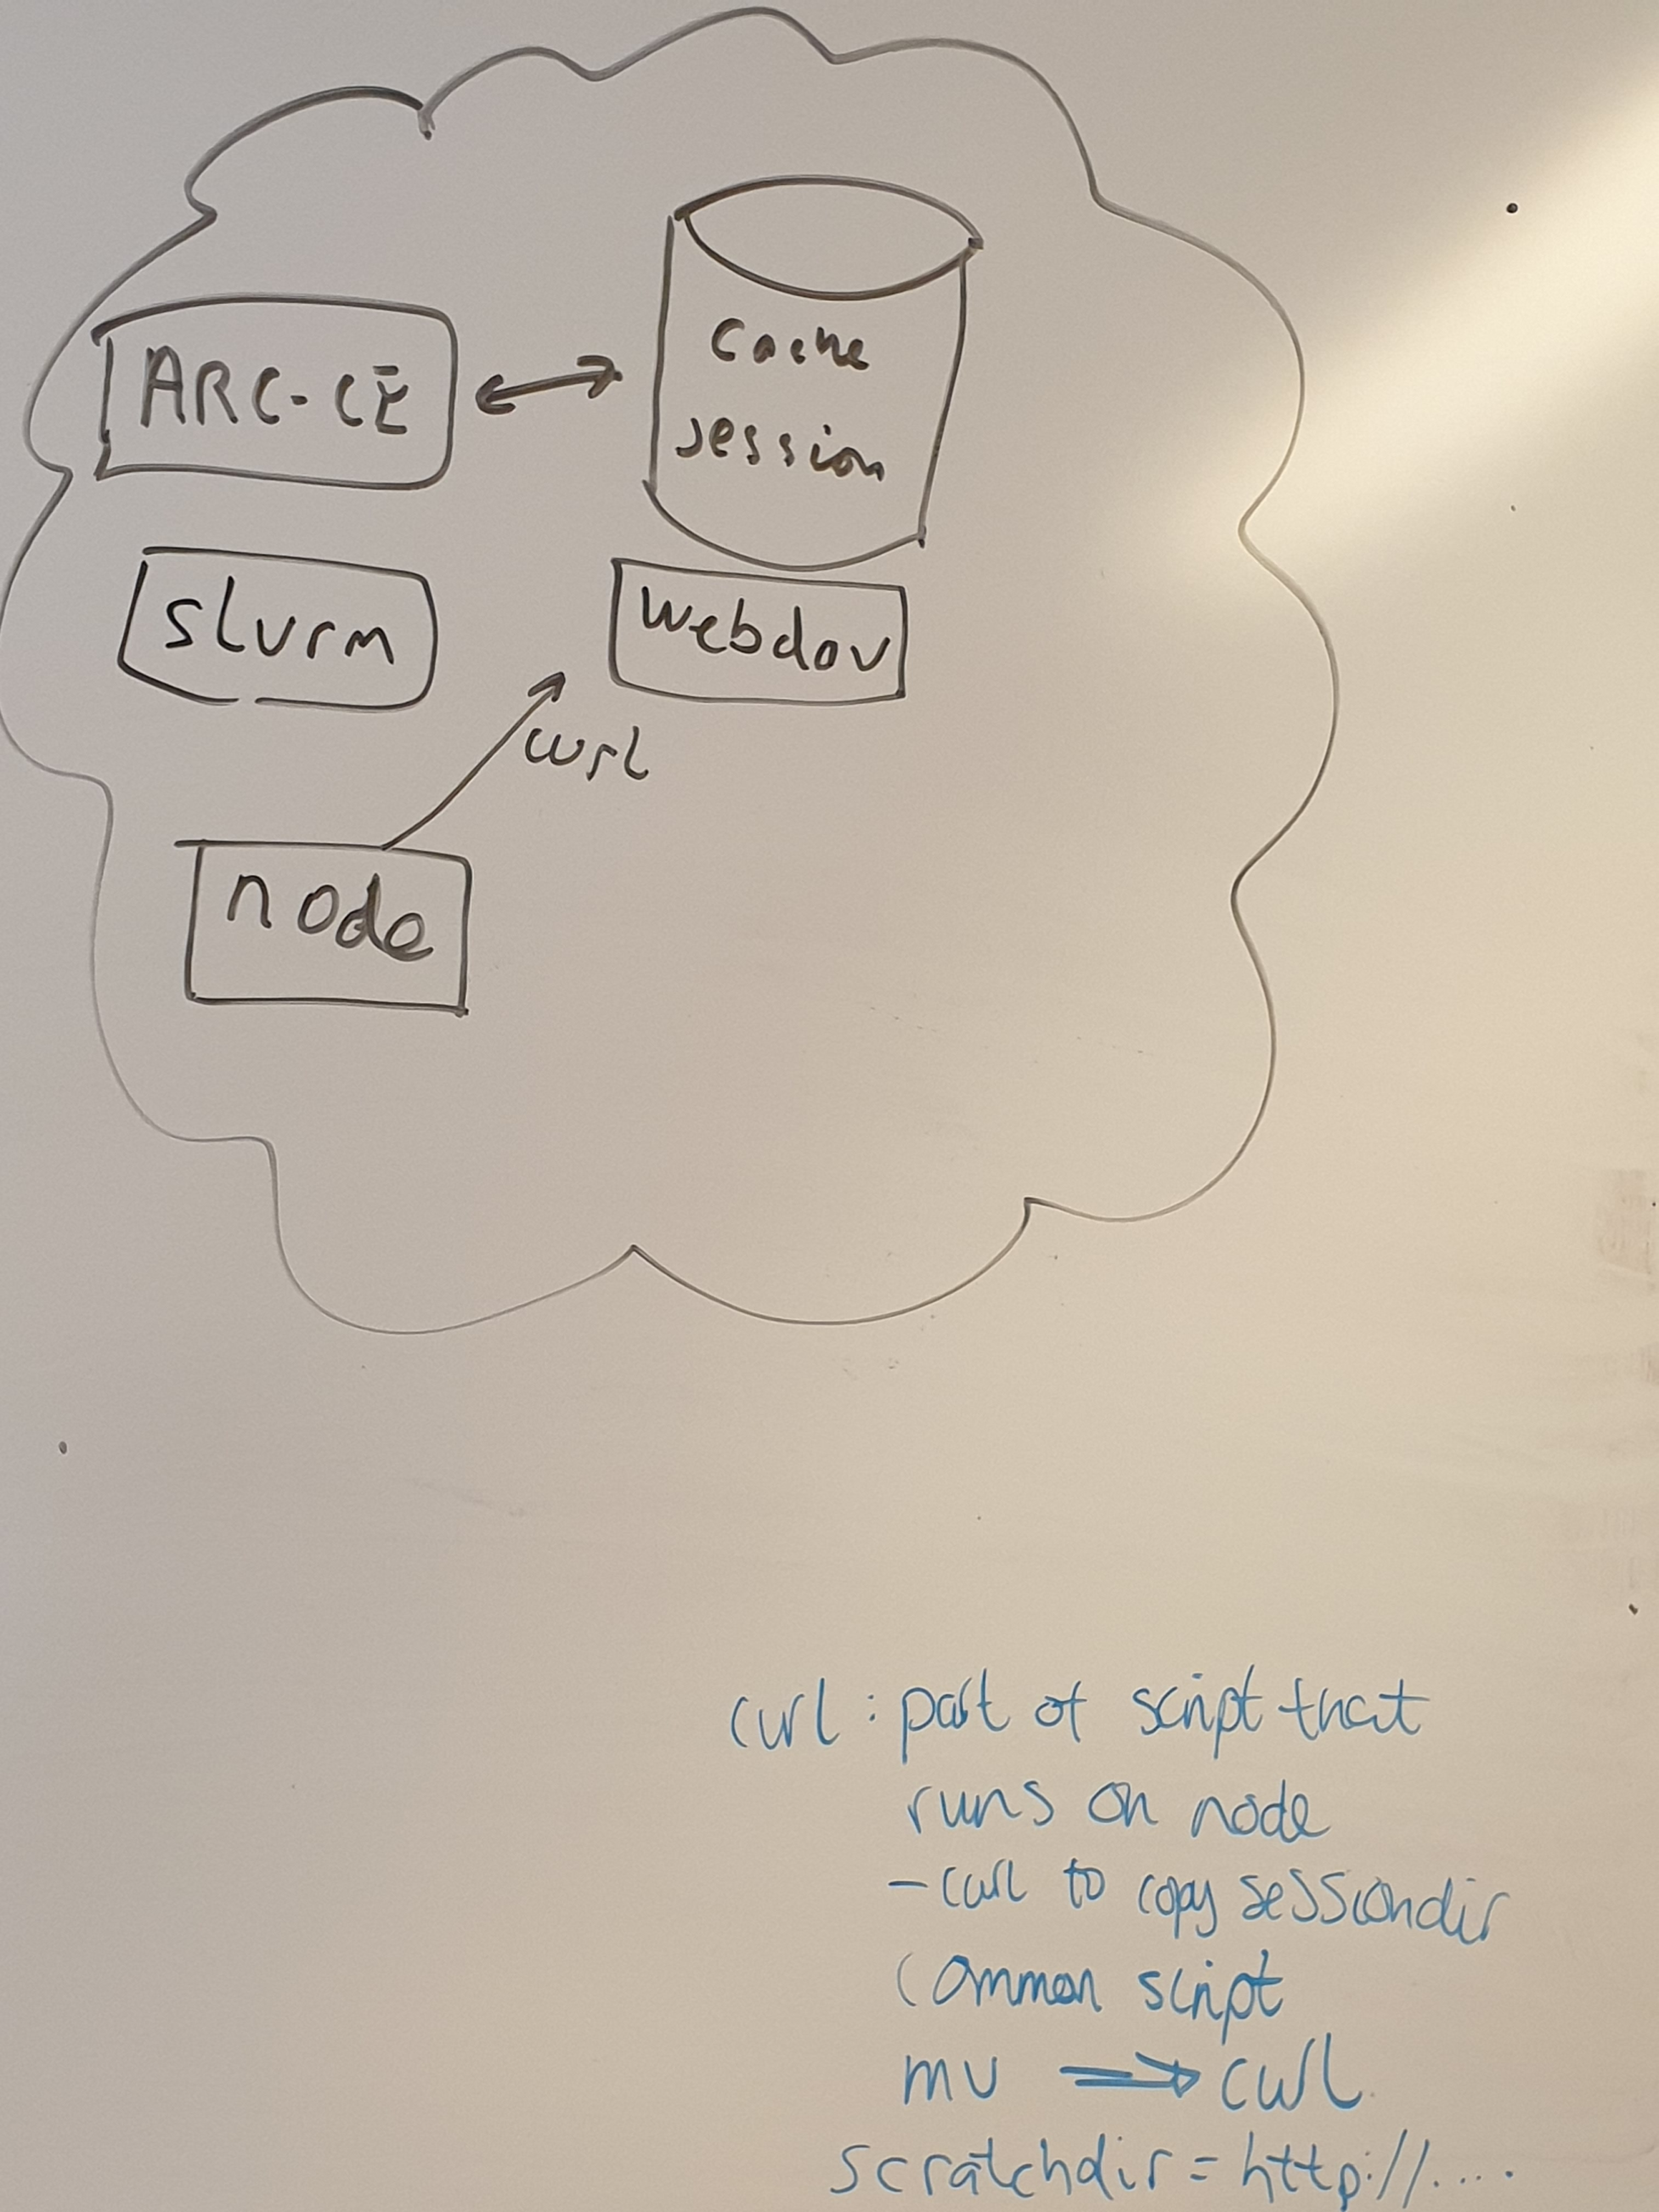 ARC-CE
Cache
session
slurm
webdav
curl
node
curl: part of script that
runs on node
- curl to copy sessiondir
Common script
mv ⇒ curl
scratchdir = http://....